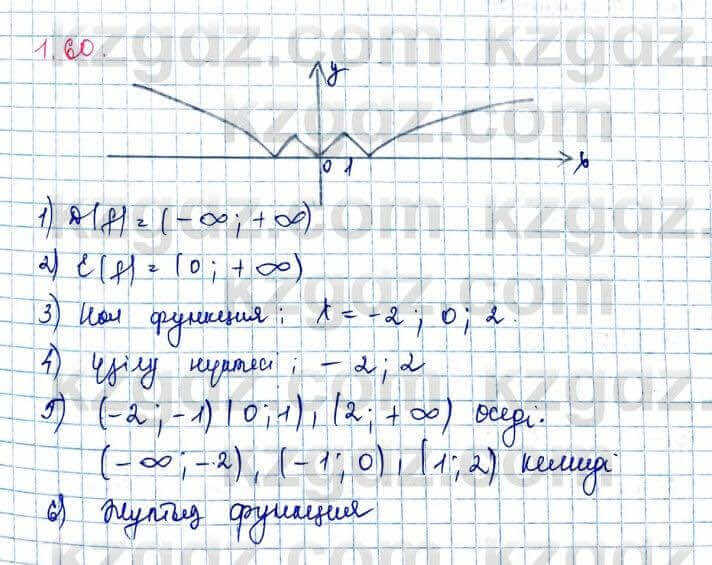 1.60.
y
0 1 x
1) D(f) = (-∞; +∞)
2) E(f) = (0; +∞)
3) Нөл функция; x = -2; 0; 2.
4) Үзілу нүктесі; -2; 2
5) (-2; -1) (0; 1), (2; +∞) өседі.
(-∞; -2), (-1; 0), (1; 2) кемиді
6) Жұптық функция
kzgdz.com